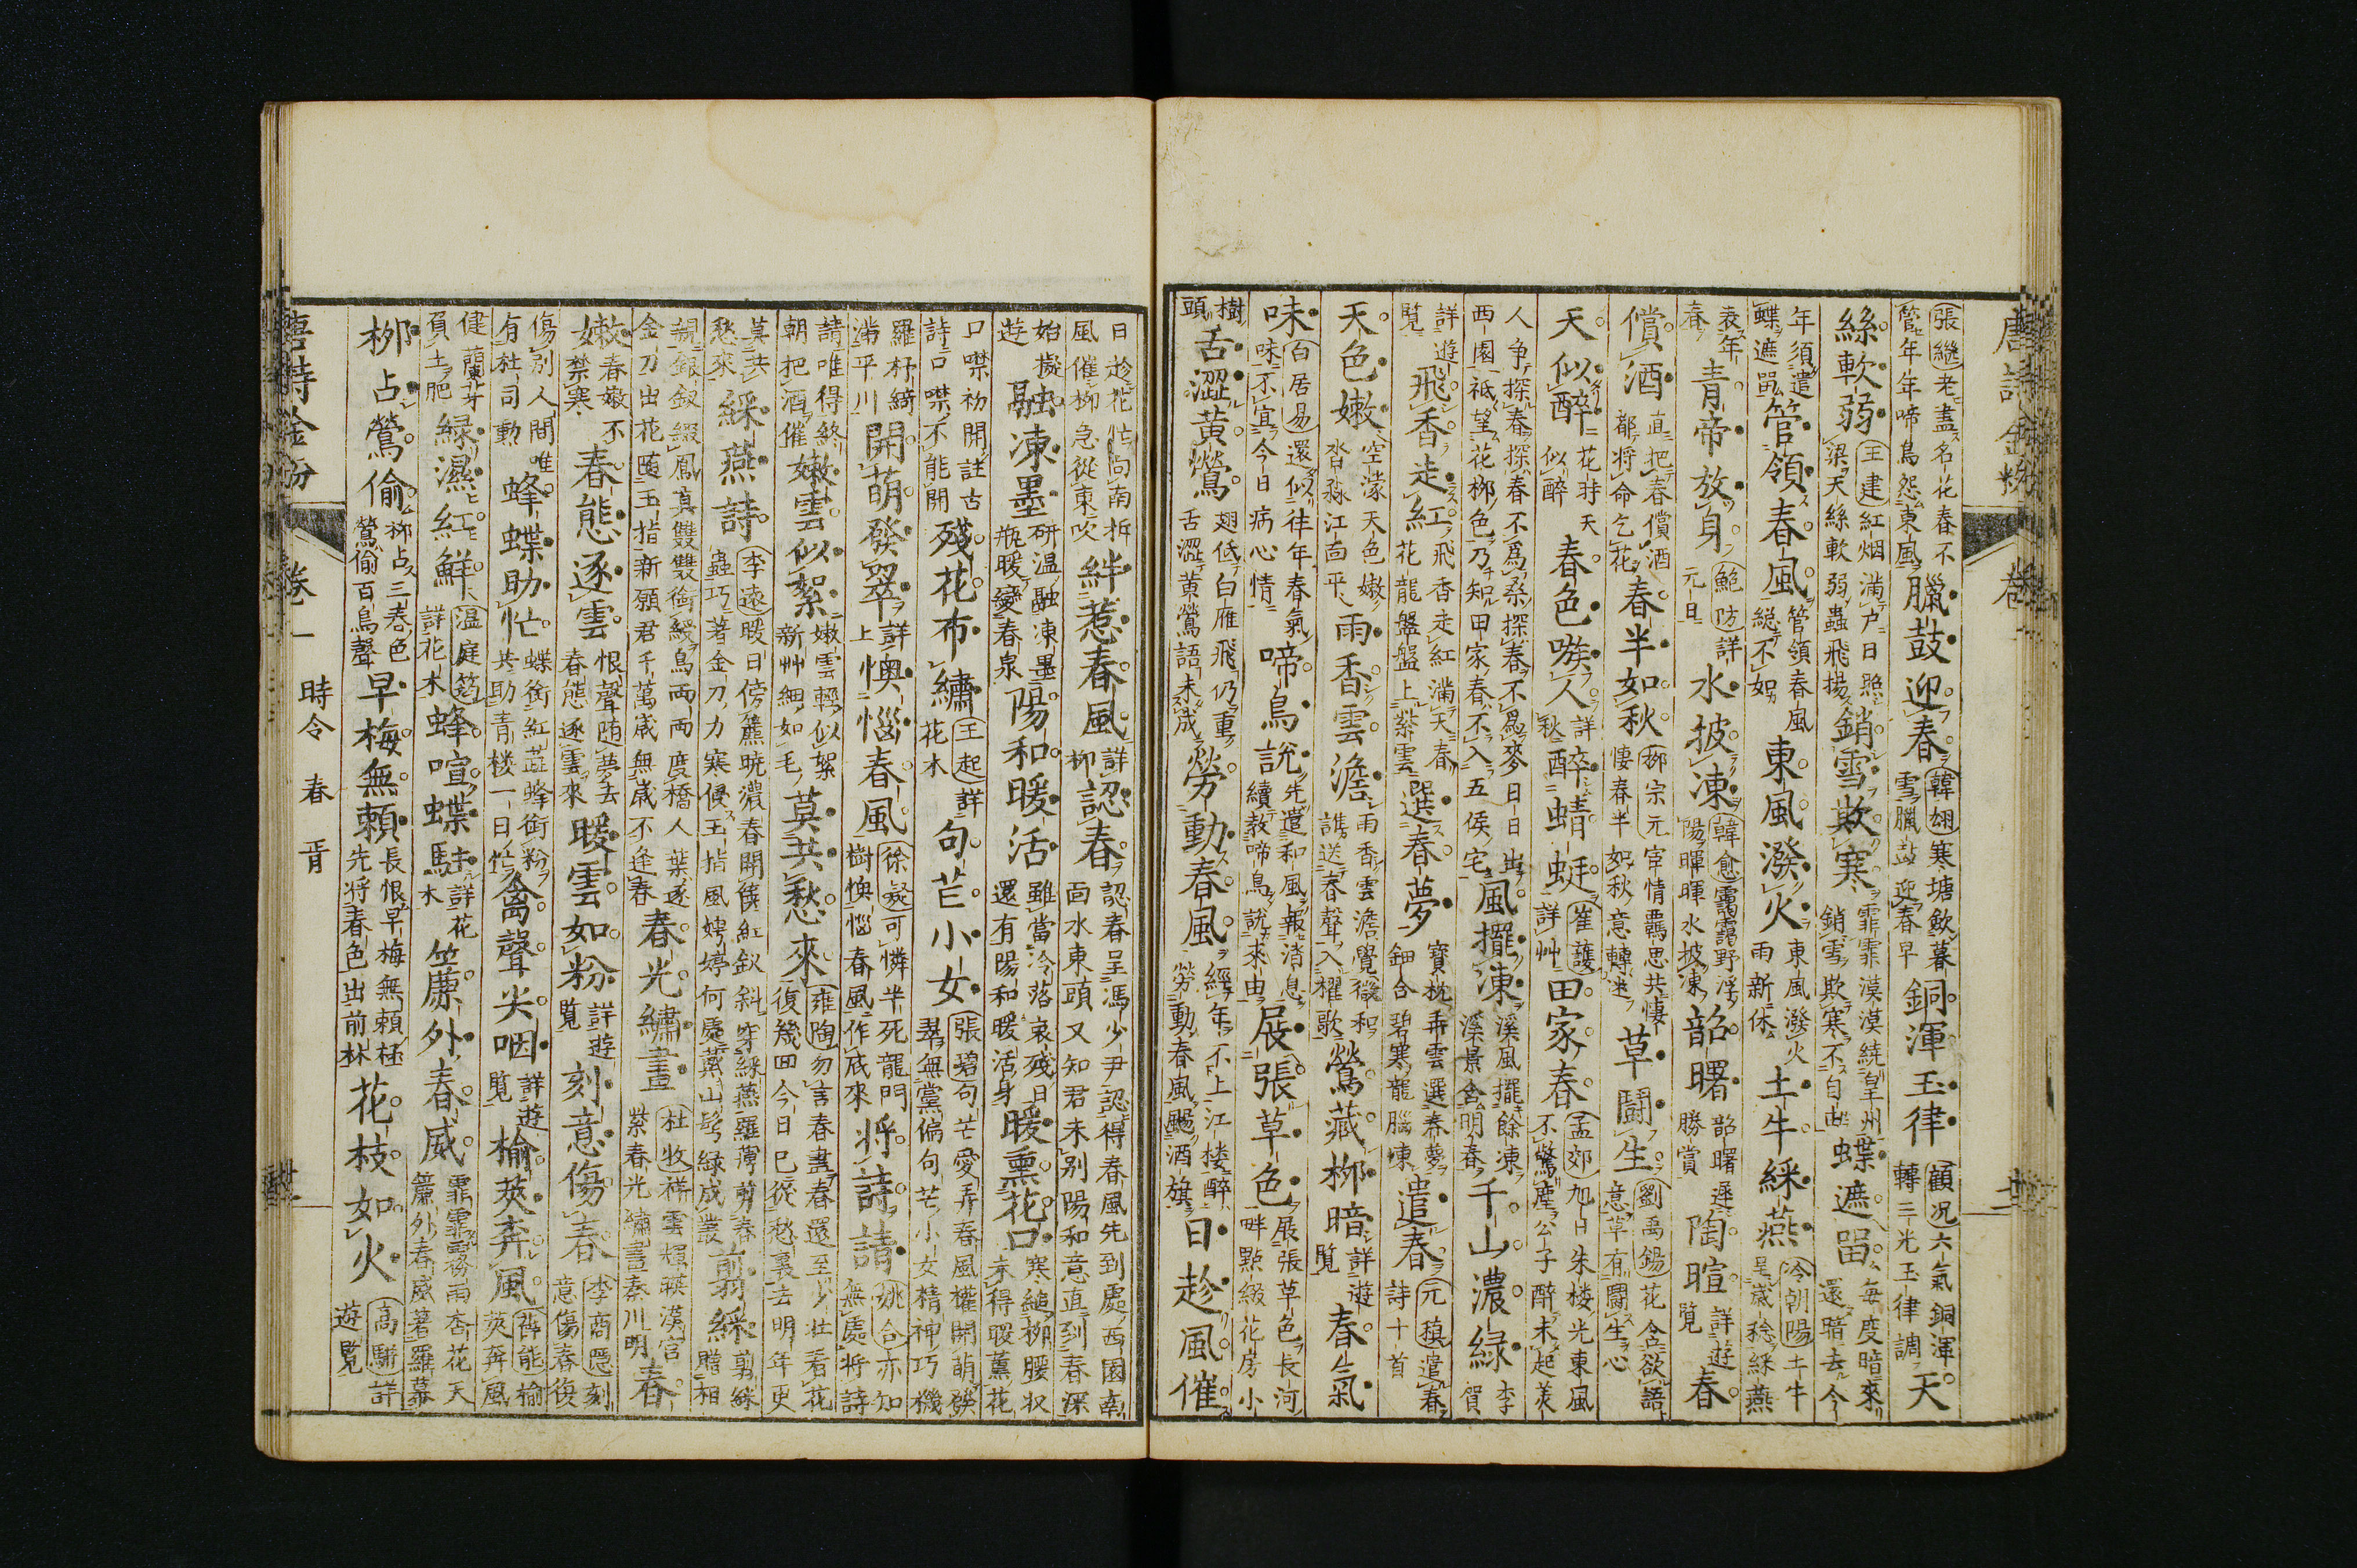 唐詩金粉 卷 廿一
張繼老盡名花春不管年年啼鳥怨東風 臘鼓迎春 韓翃寒塘歛暮雪臘鼓迎春早 銅渾玉律 顧况六氣銅渾轉三光玉律調 天
絲軟弱 王建紅烟滿户日照梁天絲軟弱蟲飛揚 銷雪欺寒 霏霏漠漠繞皇州銷雪欺寒不自由 蝶遮畱 每度暗來還暗去今
年須遣蝶遮畱 管領春風 管領春風総不如 東風潑火 東風潑火雨新休 土牛綵燕 冷朝陽土牛呈歲稔綵燕
表年春 青帝放身 鮑防詳元日 水披凍 韓愈靄靄野浮陽暉暉水披凍 韶曙 韶曙遲勝賞 陶暄 詳遊覧 春
償酒 直把春償酒都將命乞花 春半如秋 柳宗元宦情羈思共悽悽春半如秋意轉迷 草鬪生 劉禹錫花含欲語意草有鬪生心
天似醉 花時天似醉 春色嗾人 詳秋 醉蜻蜓 崔護詳艸 田家春 孟郊旭日朱楼光東風不驚塵公子醉未起美
人争探春探春不爲桑探春不爲麥日日出西園祗望花柳色乃知田家春不入五侯宅 風擺凍 溪風擺餘凍溪景含明春 千山濃緑 李賀
詳遊覧 飛香走紅 飛香走紅滿天春花龍盤盤上紫雲 選春夢 寳枕垂雲選春夢鈿合碧寒龍腦凍 遣春 元稹遣春詩十首
天色嫩 空濛天色嫩杳淼江面平 雨香雲澹 雨香雲澹覺微和誰送春聲入櫂歌 鶯藏柳暗 詳遊覧 春氣
味 白居易還似往年春氣味不宜今日病心情 啼鳥説 先遣和風報消息續教啼鳥説來由 展張草色 展張草色長河畔點綴花房小
樹頭 舌澀黄鶯 翅低白雁飛仍重舌澀黄鶯語未成 勞動春風 經年不上江楼醉勞動春風颺酒旗 日趁風催
日趁花忙向南拆風催柳急從東吹 絆惹春風 詳柳 認春 認春呈馮少尹認得春風先到處西園南面水東頭又知君未别陽和意直到春深
始擬遊 融凍墨 研温融凍墨瓶暖變春泉 陽和暖活 雖當冷落衰殘日還有陽和暖活身 暖熏花口 寒縋柳腰收未得暖薰花
口噤初開註古詩口噤不能開 殘花布繡 王起詳花木 句芒小女 張碧句芒愛弄春風權開萌發翠無黨偏句芒小女精神巧機
羅杼綺滿平川 開萌發翠 詳上 懊惱春風 徐凝可憐半死龍門樹懊惱春風作底來 將詩請 姚合亦知無處將詩
請唯得終朝把酒催 嫩雲似絮 嫩雲輕似絮新艸細如毛 莫共愁來 雍陶勿言春盡春還至少壯看花復幾回今日已從愁裏去明年更
莫共愁來 綵燕詩 李遠暖日傍簾暁濃春開篋紅釵斜穿綵燕羅薄剪春蟲巧著金刀力寒侵玉指風娉婷何處戴山髩緑成叢 剪綵 剪綵贈相
親銀釵綴鳳真雙雙銜綬鳥兩兩度橋人葉逐金刀出花隨玉指新願君千萬歲無歲不逢春 春光繡畫 杜牧祥雲輝暎漢宮紫春光繡畫秦川明 春
嫩 春嫩不禁寒 春態逐雲 恨聲随夢去春態逐雲來 暖雲如粉 詳遊覧 刻意傷春 李商隱刻意傷春復
傷别人間唯有杜司勲 蜂蝶助忙 蝶銜紅蘂蜂銜粉共助青楼一日忙 禽聲尖咽 詳遊覧 楡莢奔風 薛能榆莢奔風
健蘭芽負土肥 緑濕紅鮮 温庭筠詳花木 蜂喧蝶駐 詳花木 簾外春威 霏霏霧雨杏花天簾外春威著羅幕
柳占鶯偷 柳占三春色鶯偷百鳥聲 早梅無頼 長恨早梅無頼極先將春色出前林 花枝如火 高駢詳遊覧
唐詩金粉 卷一 時令 春 育